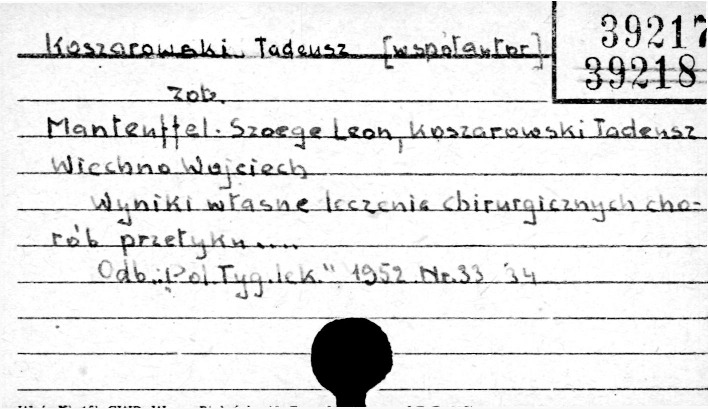 39217
39218
Koszarowski Tadeusz [współautor]
zob.
Manteuffel-Szoege Leon, Koszarowski Tadeusz
Wiechno Wojciech
Wyniki własne leczenia chirurgicznych cho-
rób przełyku....
Odb.:"Pol.Tyg.lek." 1952.Nr.33 34